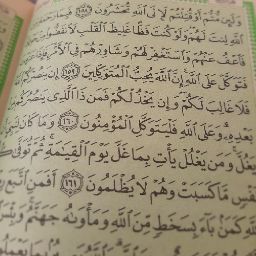 وَلَئِن مُّتُّمْ أَوْ قُتِلْتُمْ لَإِلَى ٱللَّهِ تُحْشَرُونَ ١٥٨ فَبِمَا رَحْمَةٍ
ٱللَّهِ لِنتَ لَهُمْ وَلَوْ كُنتَ فَظًّا غَلِيظَ ٱلْقَلْبِ لَٱنفَضُّوا۟
فَٱعْفُ عَنْهُمْ وَٱسْتَغْفِرْ لَهُمْ وَشَاوِرْهُمْ فِى ٱلْأَمْرِ فَإِذَا
فَتَوَكَّلْ عَلَى ٱللَّهِ إِنَّ ٱللَّهَ يُحِبُّ ٱلْمُتَوَكِّلِينَ ١٥٩ إِن يَنصُرْكُمُ
فَلَا غَالِبَ لَكُمْ وَإِن يَخْذُلْكُمْ فَمَن ذَا ٱلَّذِى يَنصُرُكُم
بَعْدِهِۦ وَعَلَى ٱللَّهِ فَلْيَتَوَكَّلِ ٱلْمُؤْمِنُونَ ١٦٠ وَمَا كَانَ لِنَبِىٍّ
يَغُلَّ وَمَن يَغْلُلْ يَأْتِ بِمَا غَلَّ يَوْمَ ٱلْقِيَٰمَةِ ثُمَّ تُوَفَّىٰ
نَفْسٍ مَّا كَسَبَتْ وَهُمْ لَا يُظْلَمُونَ ١٦١ أَفَمَنِ ٱتَّبَعَ
ٱللَّهِ كَمَنۢ بَآءَ بِسَخَطٍ مِّنَ ٱللَّهِ وَمَأْوَىٰهُ جَهَنَّمُ وَبِئْسَ